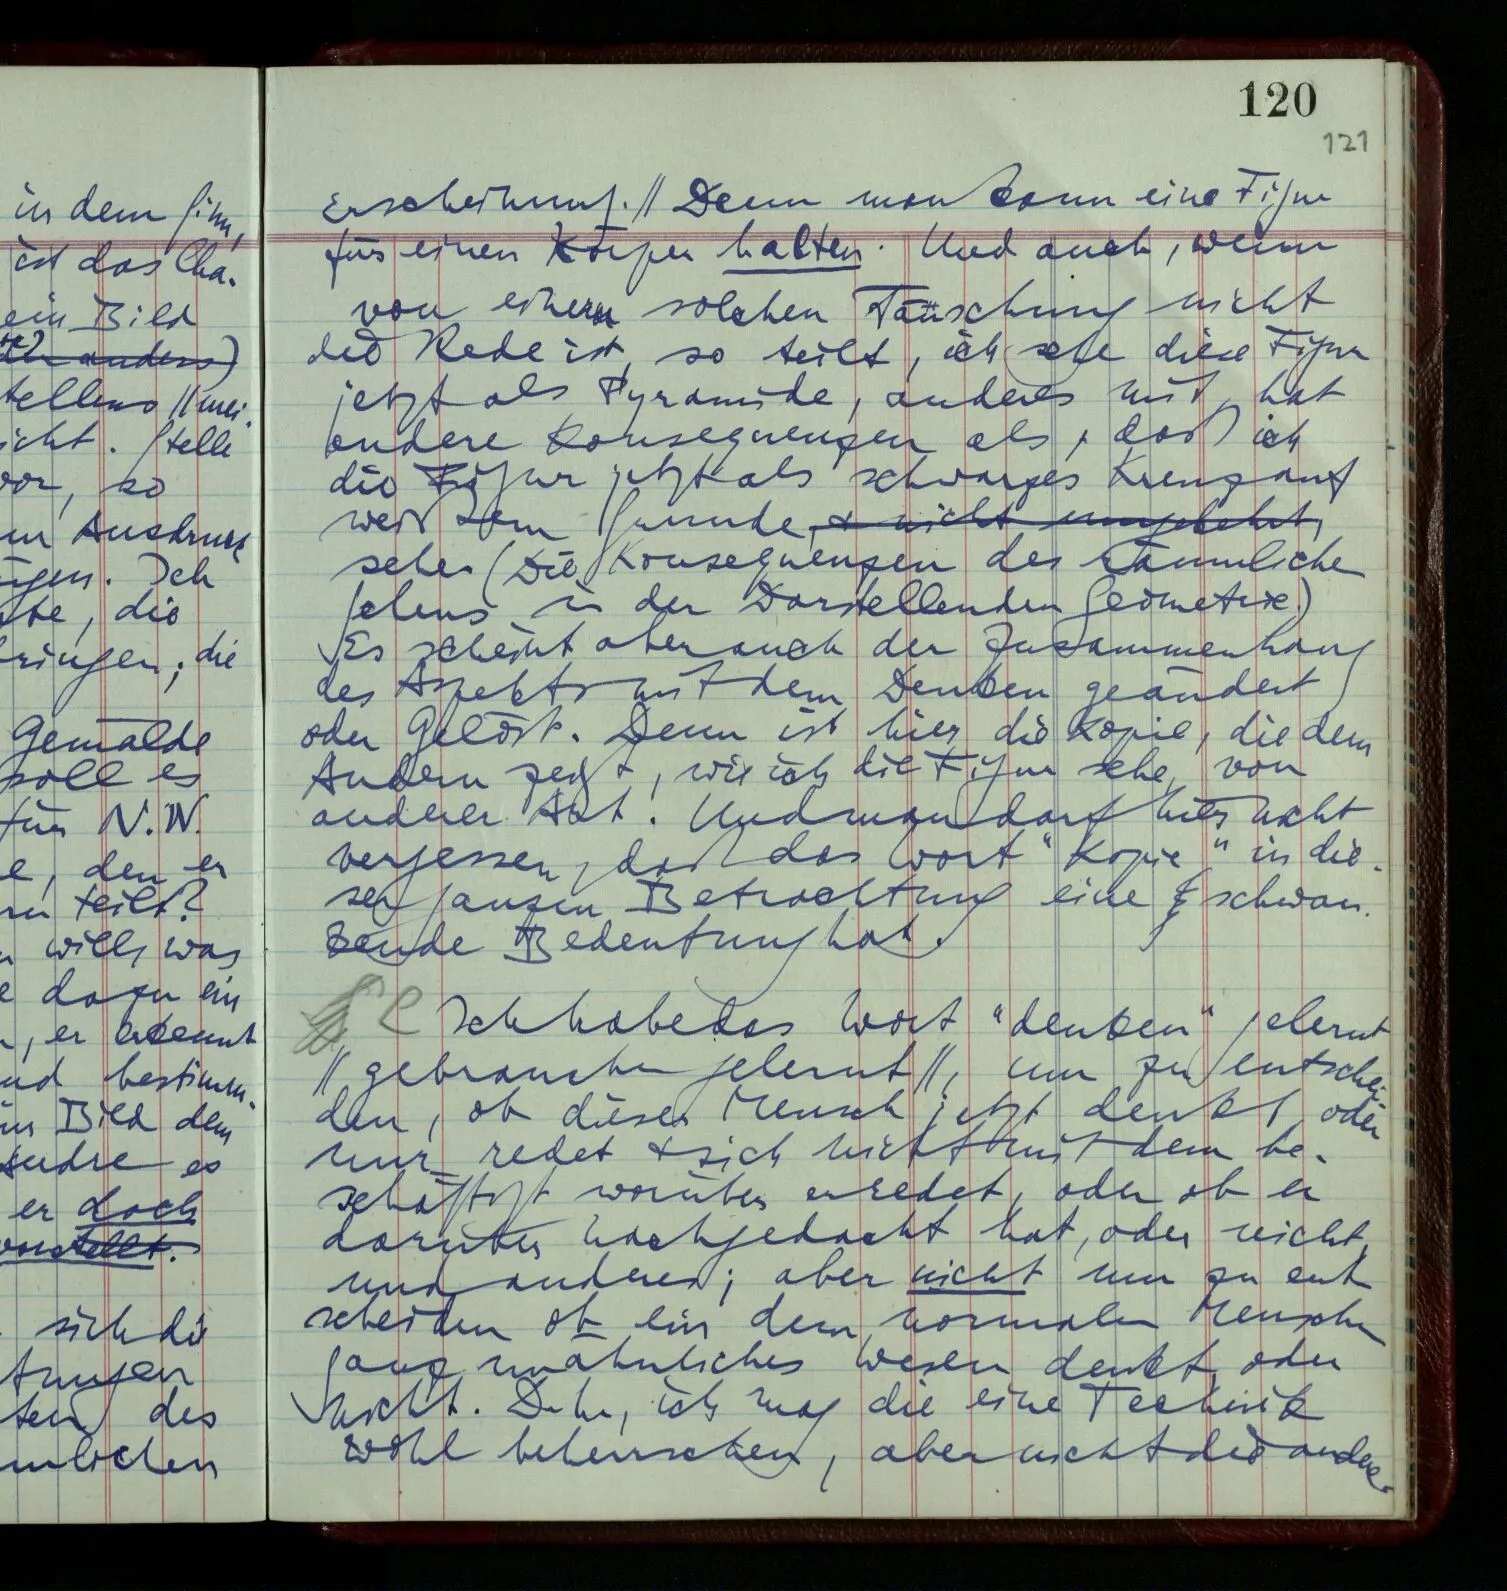 in dem Sinn,
ist das Cha-
ein Bild
anders)
stellens // mei-
icht. Stelle
vor, so
en Ausdruck
igen. Ich
abe, die
bringen; die
Gemälde
soll es
für N.N.
e, den er
teilt?
will, was
e dazu ein
, er erkennt
und bestimm-
in Bild dem
andre es
er doch
vorstellt.
sich die
des
mlichen
120
121
Erscheinung. // Denn man kann eine Figur
für einen Körper halten. Und auch, wenn
von einer solchen Täuschung nicht
die Rede ist, so teilt, ich sehe diese Figur
jetzt als Pyramide, anderes mit, hat
andere Konsequenzen als, daß ich
die Figur jetzt als schwarzes Kreuz auf
weißem Grunde, & nicht umgekehrt,
sehe. (Die Konsequenzen des räumlichen
Sehens in der Darstellenden Geometrie.)
Es scheint aber auch der Zusammenhang
des Aspekts mit dem Denken geändert
oder gelöst. Denn ist hier die Kopie, die dem
Andern zeigt, wie ich die Figur sehe, von
anderer Art. Und man darf hier nicht
vergessen, daß das Wort "Kopie" in die-
ser ganzen Betrachtung eine schwan-
kende Bedeutung hat.
Ich habe das Wort "denken" gelernt
// gebrauchen gelernt //, um zu entschei-
den, ob dieser Mensch jetzt denkt, oder
nur redet & sich nicht mit dem be-
schäftigt worüber er redet, oder ob er
darüber nachgedacht hat, oder nicht,
und anderes; aber nicht um zu ent
scheiden ob ein dem normalen Menschen
ganz unähnliches Wesen denkt, oder
nicht. D.h., ich mag die eine Technik
wohl beherrschen, aber nicht die andere.